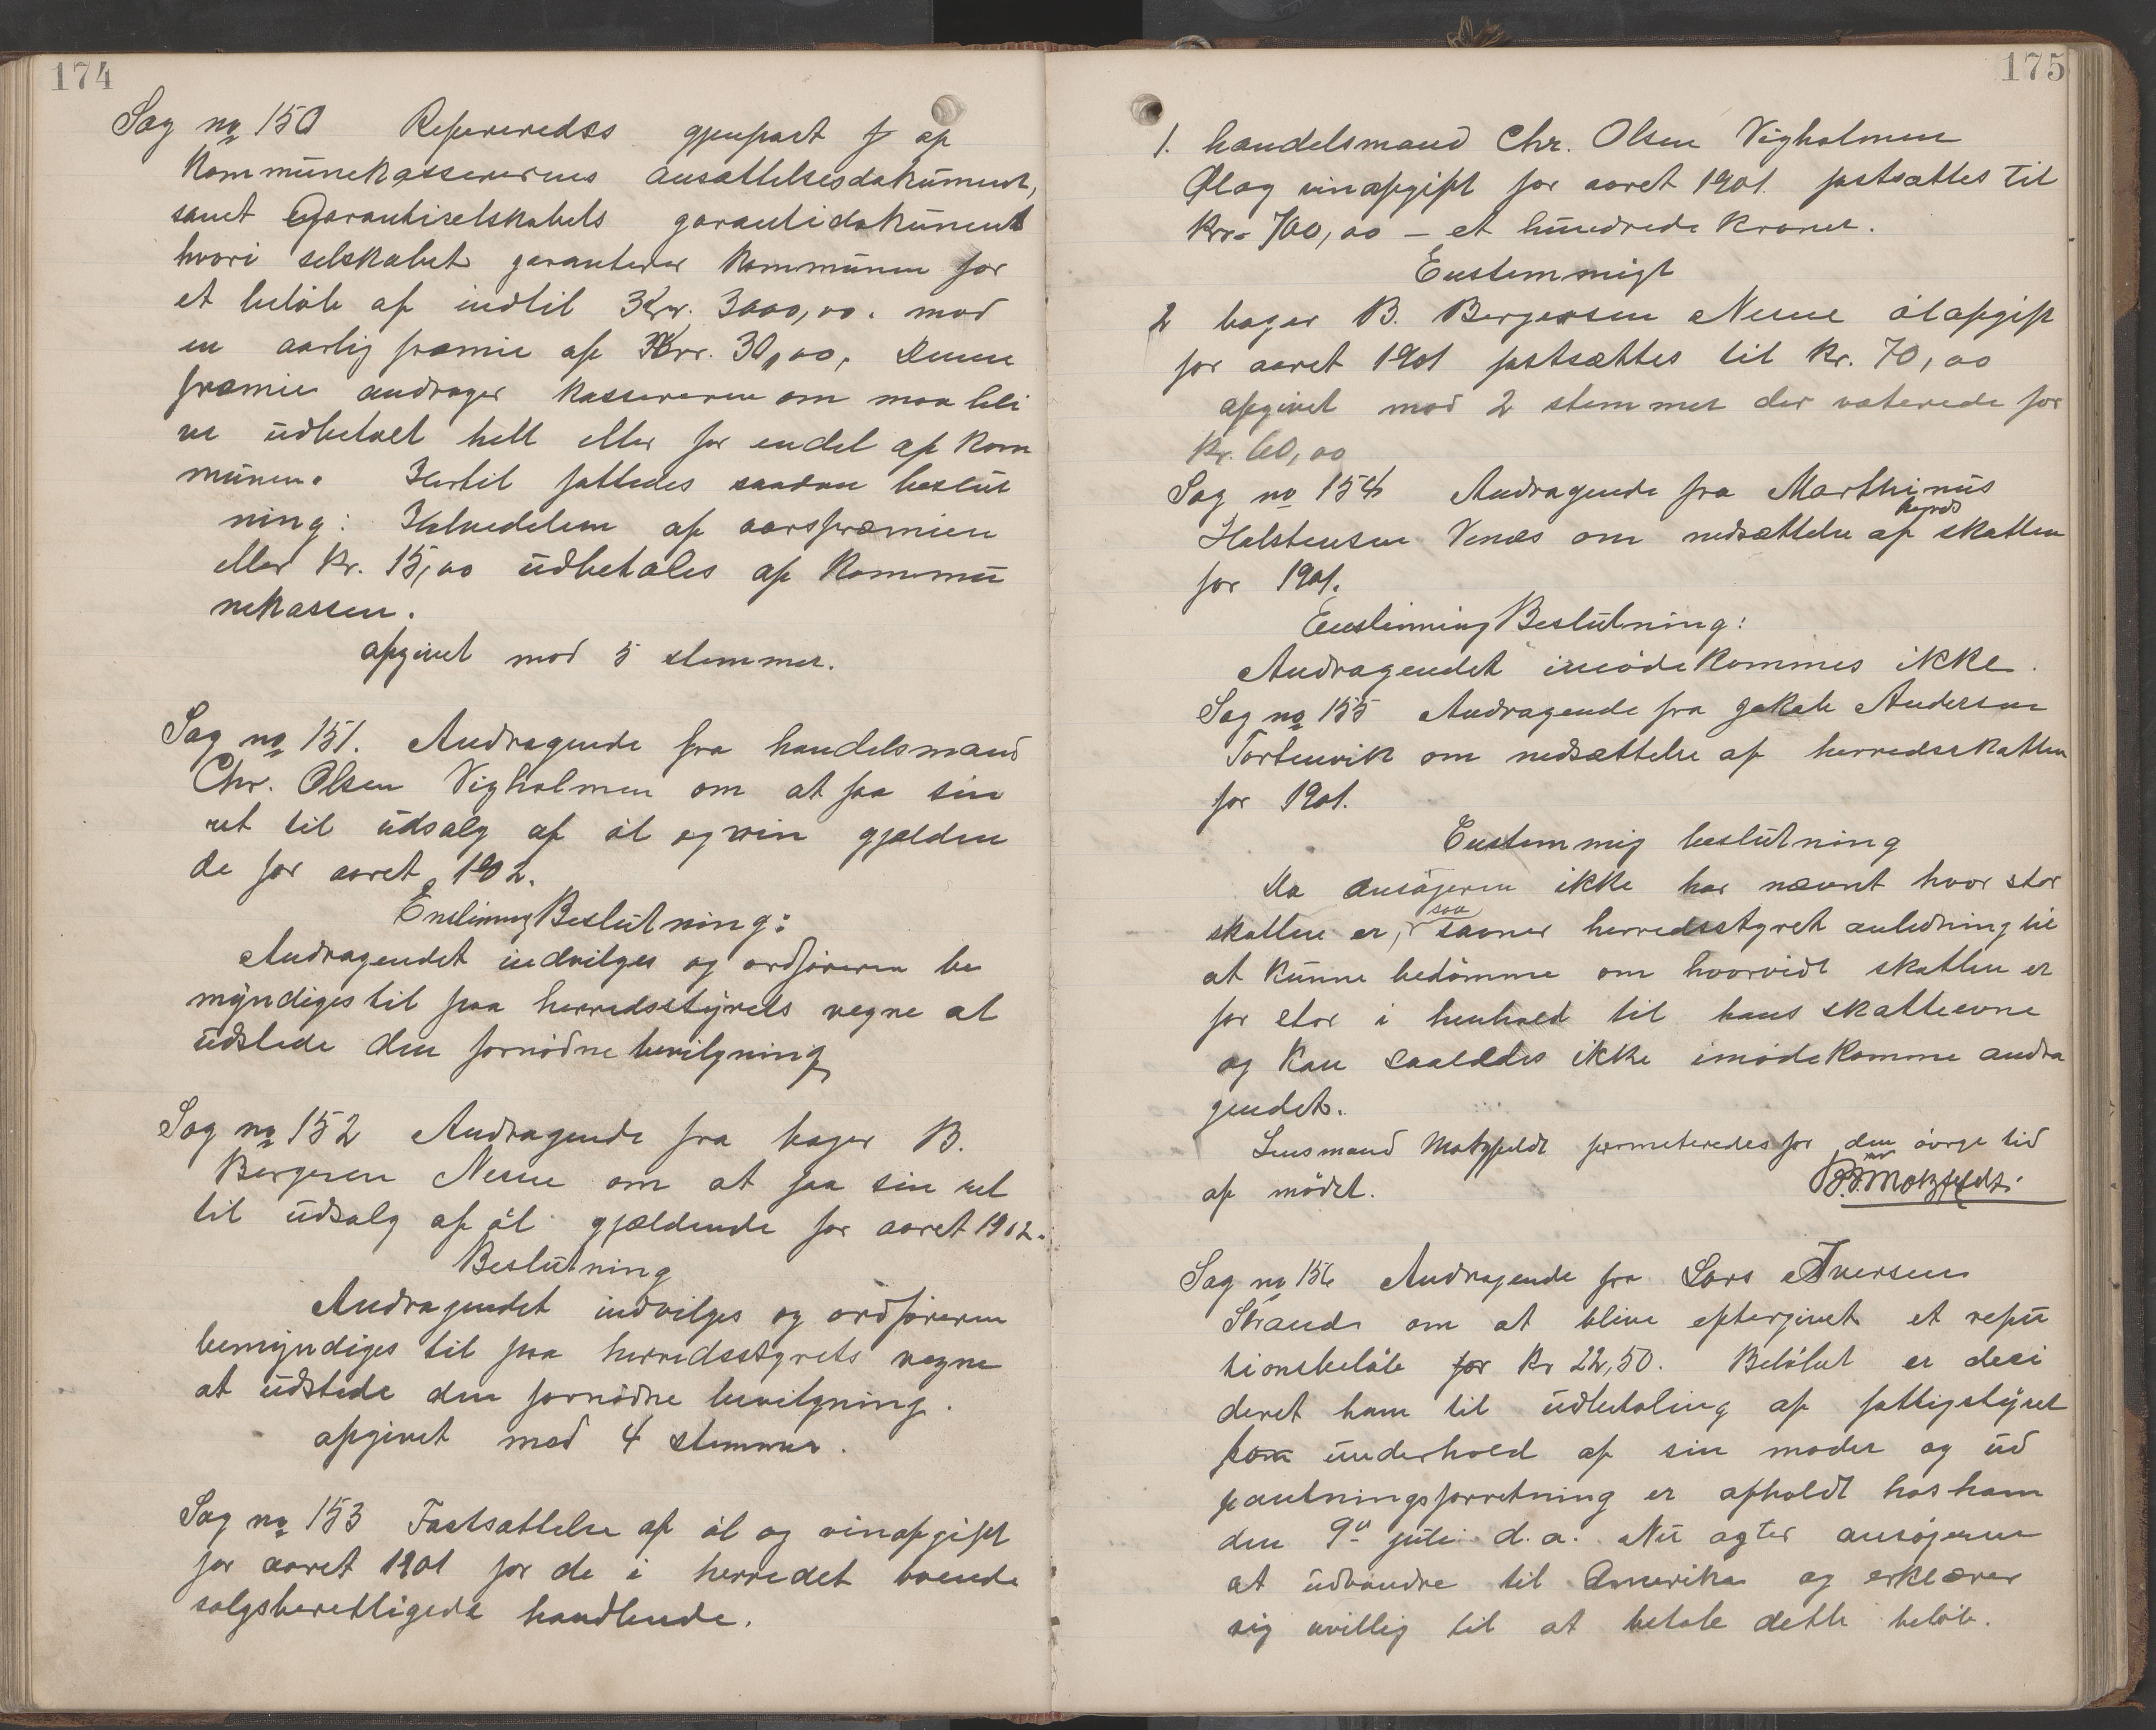 174
Sag no 150 Refereredes gjenpart af
Kommünekassererens ansættelsesdokument,
samt Garantiselskabets garantidokument
hvori selskabet garanterer kommunen for
et beløb af indtil Kr. 3000,00. mod
en aarlig præmie af Kr. 30,00, Denne
præmie andrager kassereren om maa bli
ve udbetalt helt eller for endel af kom
munen. Hertil fattedes saadan beslut
ning: Halvedelen af aarspræmien
eller Kr. 15,00 udbetales af kommu
nekassen.
afgivet mod 5 stemmer.
Sag no 151. Andragende fra handelsmand
Chr. Olsen Vigholmen om at faa sin
ret til udsalg af øl og vin gjælden
de for aaret 1902.
Enstemmig Beslutning:
Andragendet indvilges og ordføreren be
myndiges til paa herredsstyrets vegne at
udstede den fornødne bevilgning
Sag no 152 Andragende fra bager B.
Bergersen Nesne om at faa sin ret
til udsalg af øl gjældende for aaret 1902.
Beslutning
Andragendet indvilges og ordføreren
bemyndiges til paa herredsstyrets vegne
at udstede den fornødne bevilgning.
afgivet mod 4 stemmer.
Sag no 153 Fastsættelse af øl og vinafgift
for aaret 1901 for de i herredet boende
salgsberettigede handlende.
175
1. handelsmand Chr. Olsen Vigholmen
Øl og vinafgift for aaret 1901 fastsættes til
Kr. 100,00 – et hundrede kroner.
Enstemmigt
2 bager B. Bergersen Nesne ølafgift
for aaret 1901 fastsættes til Kr. 70,00
afgivet mod 2 stemmer der voterede for
Kr. 60,00
Sag no 154 Andragende fra Marthinus
Holstensen Venæs om nedsættelse af skatten
for 1901.
Enstemmig Beslutning:
Andragendet imødekommes ikke.
Sag no 155 Andragende fra Jakob Andersen
Tortenvik om nedsættelse af herredsskatten
for 1901.
Enstemmig beslutning
Da ansøgeren ikke har nævnt hvor stor
skatten er, saa savner herredsstyret anledning til
at kunne bedømme om hvorvidt skatten er
for stor i henhold til hans skatteevne
og kan saaledes ikke imødekomme andra
gendet.
Lensmand Motzfeldt permiteredes for den øvrge tid
af mødet. Motzfeldt.
Sag no 156 Andragende fra Lars Iversen
Strand om at blive eftergivet et repar
tionsbeløb Kr 22,50. Beløbet er deci
deret ham til udbetaling af fattigstyret
som underhold af sin moder og ud
pantningsforretning er afholdt hos ham
den 9de juli d.a. Nu agter ansøgeren
at udvandre til Amerika og erklærer
sig uvillig til at betale dette beløb.